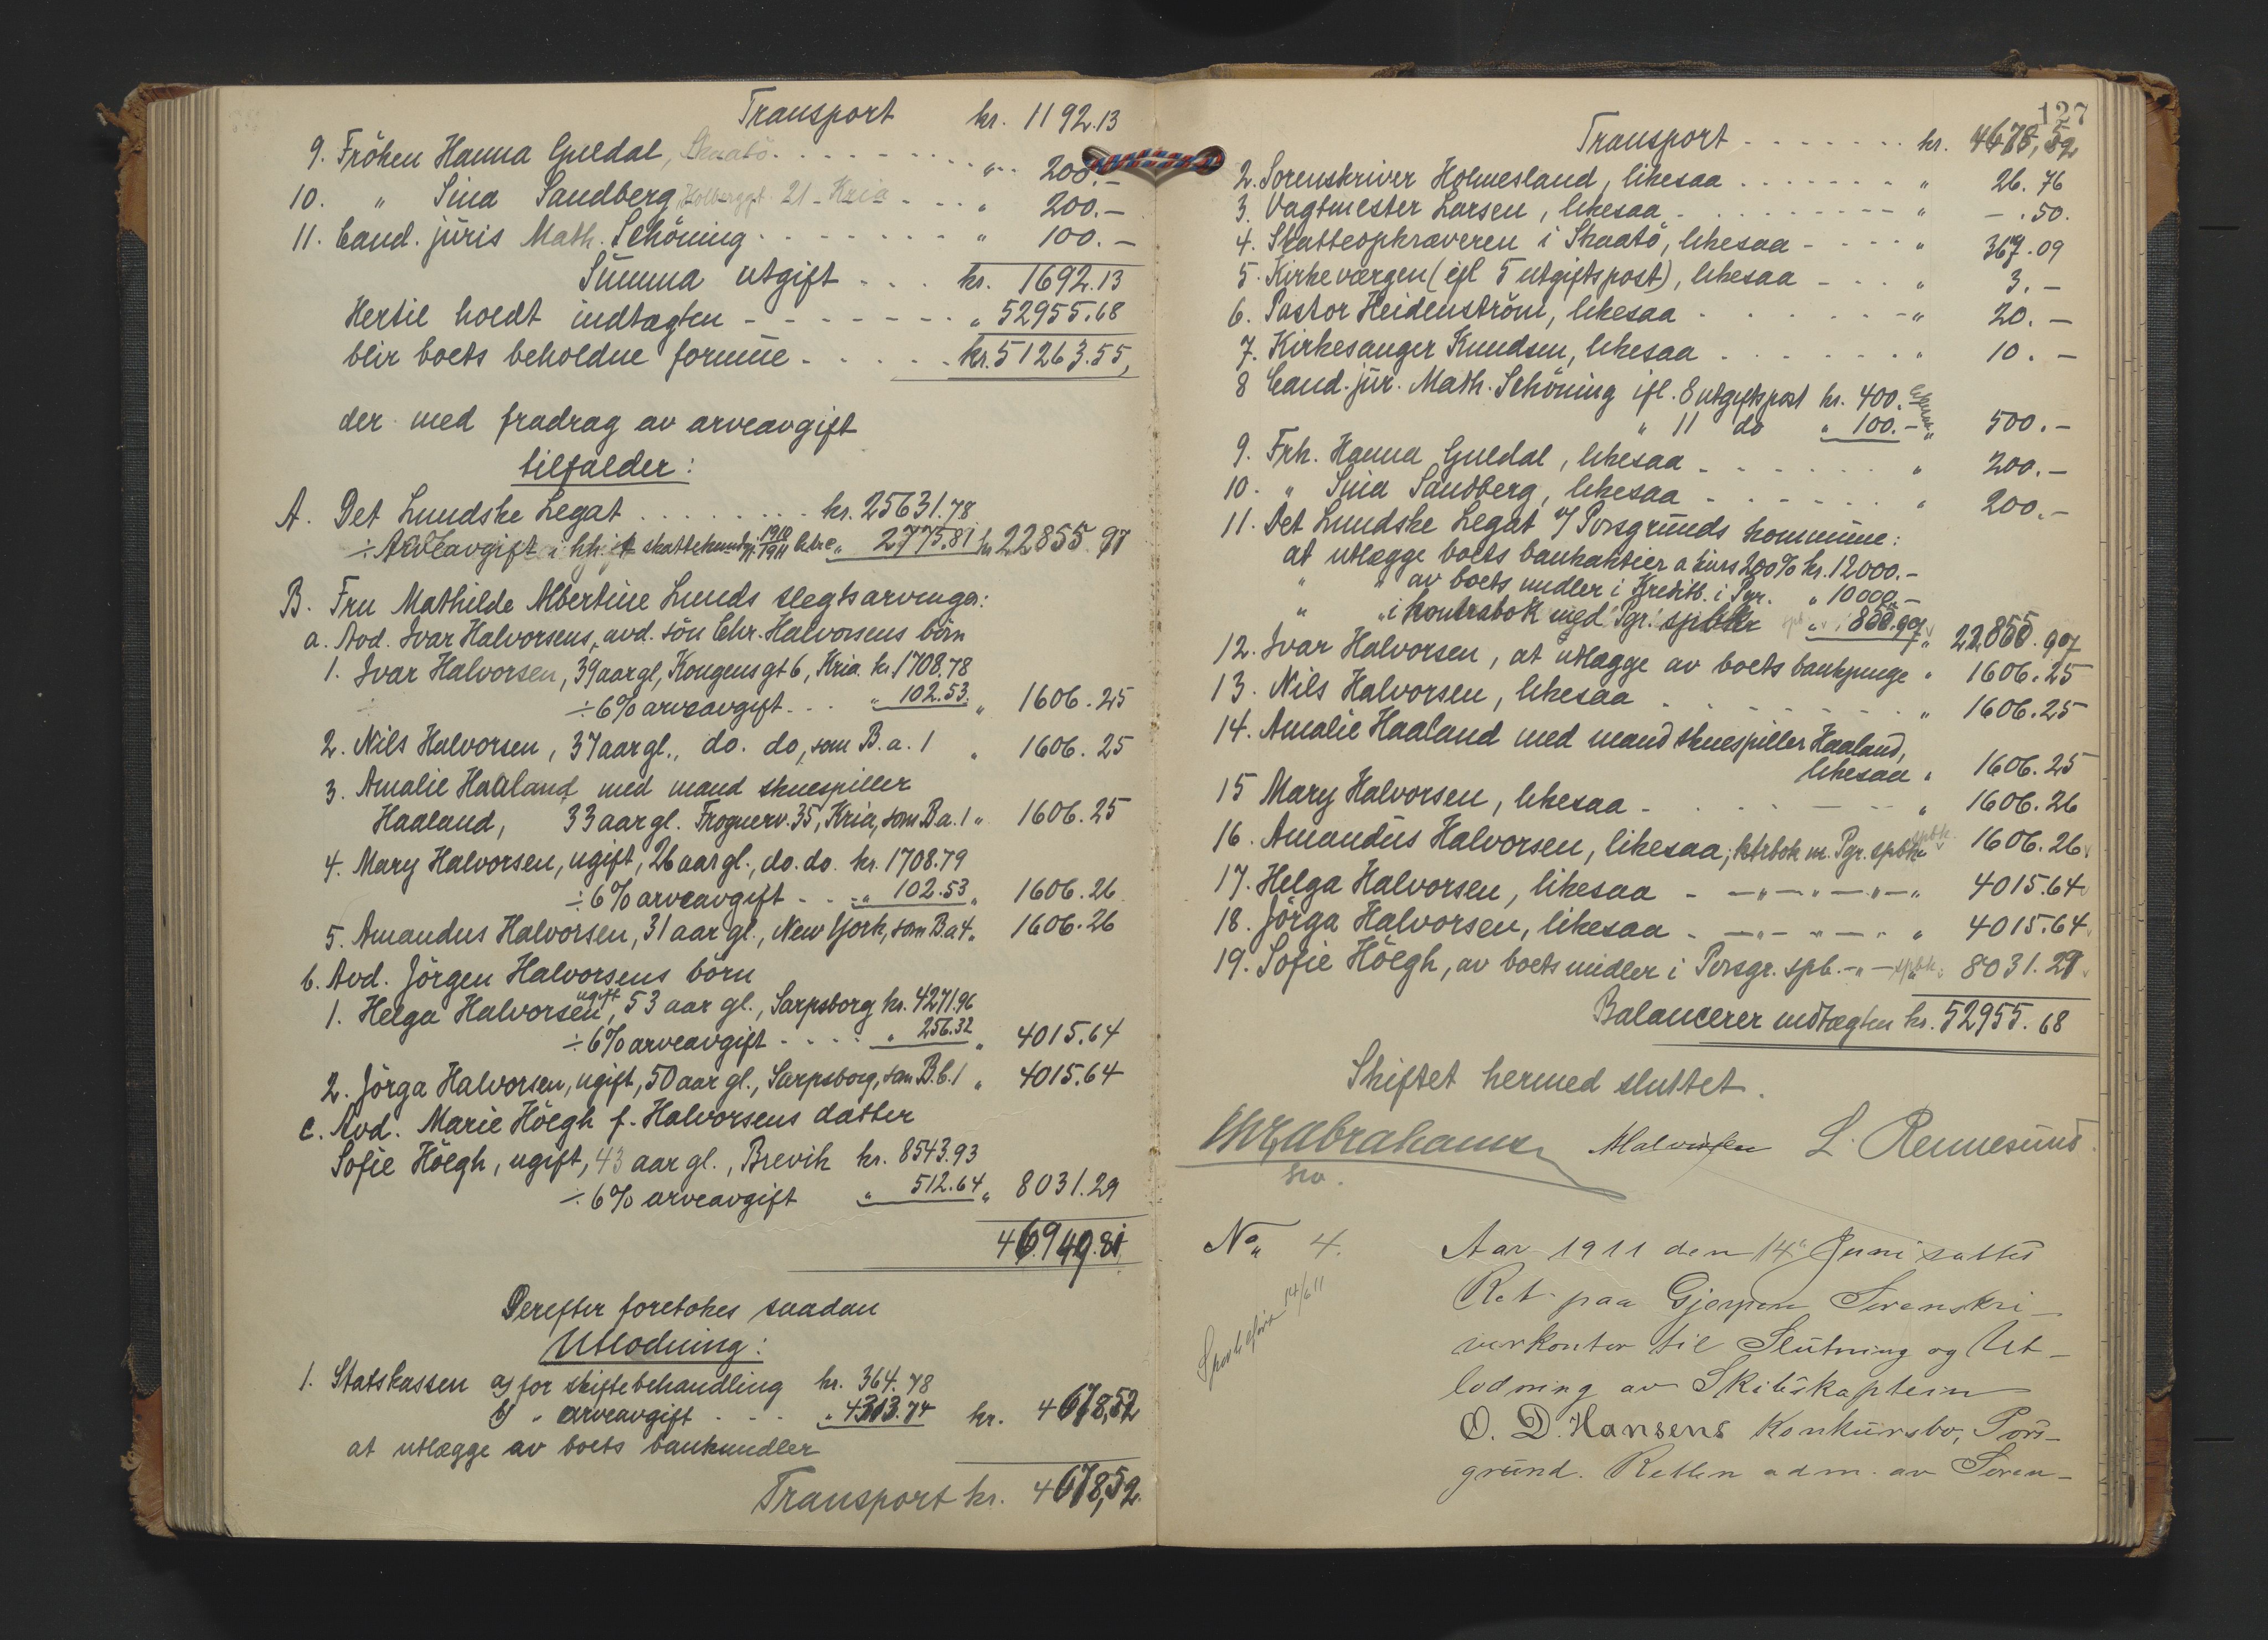 Transport kr. 1192.13
9. Fröken Hanna Guldal, Skaatö . . . . „ 200.–
10. „ Sina Sandberg, Holberggt. 21 - Kria - - - „ 200.–
11. Cand. juris Math. Schöning . . . . „ 100.–
Summa utgift . . . kr. 1692.13
Hertil hoedt indtægten - - - - „ 52955.68
blir boets beholdne formue . . . . kr. 51263.55,
der med fradrag av arveavgift
tilfalder:
A. Det Lundske Legat . . . . kr. 25631.78
÷ Arveavgift i skattekundgj. 1910/1911 „ 2775.81 kr. 22855.97
B. Fru Mathilde Albertine Lunds slegtsarvinger:
a. Avd. Ivar Halvorsens, avd. sön Chr. Halvorsens börn
1. Ivar Halvorsen, 39 aar gl, Kongensgt 6, Kria. kr. 1708.78
÷ 6% arveavgift . . . „ 102.53. „ 1606.25
2. Nils Halvorsen, 37 aar gl., do. do, som B. a. 1 „ 1606.25
3. Amalie Haaland med mand skuespiller
Haaland, 33 aar gl. Frognerv. 35, Kria, som B a. 1 „ 1606.25
4. Mary Halvorsen, ugift, 26 aar gl., do. do. kr. 1708.79
÷ 6% arveavgift - - „ 102.53 „ 1606.26
5. Amandus Halvorsen, 31 aar gl., New York, som B. a 4 „ 1606.26
b. Avd. Jörgen Halvorsens börn
1. Helga Halvorsen, ugift, 53 aar gl., Sarpsborg kr. 4271.96
÷ 6% arveavgift . . . . „ 256.32 „ 4015.64
2. Jörga Halvorsen, ugift, 50 aar gl., Sarpsborg, som B. b. 1 „ 4015.64
c. Avd. Marie Höegh f. Halvorsens datter
Sofie Höegh, ugift, 43 aar gl., Brevik kr. 8543.93
÷ 6% arveavgift „ 512.64 „ 8031.29
46949.81
Derefter foretokes saadan
Utlodning:
1. Statskassen a) for skiftebehandling kr. 364.78
b) „ arveavgift . - - „ 4313.74 kr. 4678,52
at utlægge av boets bankmidler
Transport kr. 4678,52.
127
Transport . . . . . . kr. 4678,52
2. Sorenskriver Holmesland, likesaa . . . . „ 26.76
3. Vagtmester Larsen, likesaa . . . . „ – .50.
4. Skatteopkræveren i Skaatö, likesaa - - - - „ 367.09
5. Kirkeværgen (ifl 5 utgiftspost), likesaa - - - „ 3.–
6. Pastor Heidenström, likesaa . . . . „ 20.–
7. Kirkesanger Knudsen, likesaa . . . . „ 10.–
8 Cand. jur. Math. Schöning ifl. 8 utgiftspost kr. 400.
„ 11 do „ 100.– likesaa „ 500.–
9. Frk. Hanna Guldal, likesaa . . . . „ 200.–
10. „ Sina Sandberg, likesaa . . . . „ 200.–
11. Det Lundske Legat v/ Porsgrunds kommune:
at utlægge boets bankaktier a kurs 200% kr. 12000.–
„ „ av boets midler i Kreditb. i Pgr. „ 10000.–
„ „ i kontrabok med Pgr. spbk „ 855.97 „ 22855.97
12. Ivar Halvorsen, at utlægge av boets bankpenge „ 1606.25
13. Nils Halvorsen, likesaa . . . . „ 1606.25
14. Amalie Haaland med mand skuespiller Haaland,
likesaa „ 1606.25
15 Mary Halvorsen, likesaa - . . . „ 1606.26
16. Amandus Halvorsen, likesaa; ktrbok m. Pgr. spbk. „ 1606.26
17. Helga Halvorsen, likesaa - – „ – „ – „ – „ 4015.64
18. Jörga Halvorsen, likesaa - – „ – „ – „ „ 4015.64
19. Sofie Höegh, av boets midler i Porsgr. spb. – „ – spbk. „ 8031.29
Balancerer indtægten kr. 52955.68
Skiftet hermed sluttet.
Chr Abrahamsen L. Rennesund
No. 4.
14/6 11
Aar 1911 den 14de Juni sattes
Ret paa Gjerpen Sorenskri-
verkontor til Slutning og Ut-
lodning av Skibskaptein
O. D. Hansens Konkursbo, Pors-
grund. Retten adm. av Soren-